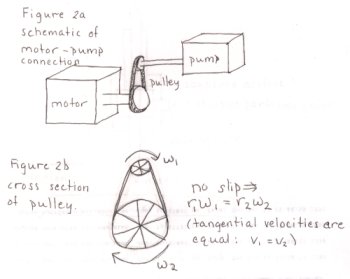 Figure 2a
schematic of
motor-pump
connection
pump
pulley
motor
Figure 2b
cross section
of pulley.
ω₁
ω₂
no slip ⇒
r₁ω₁ = r₂ω₂
(tangential velocities are
equal: v₁ = v₂)